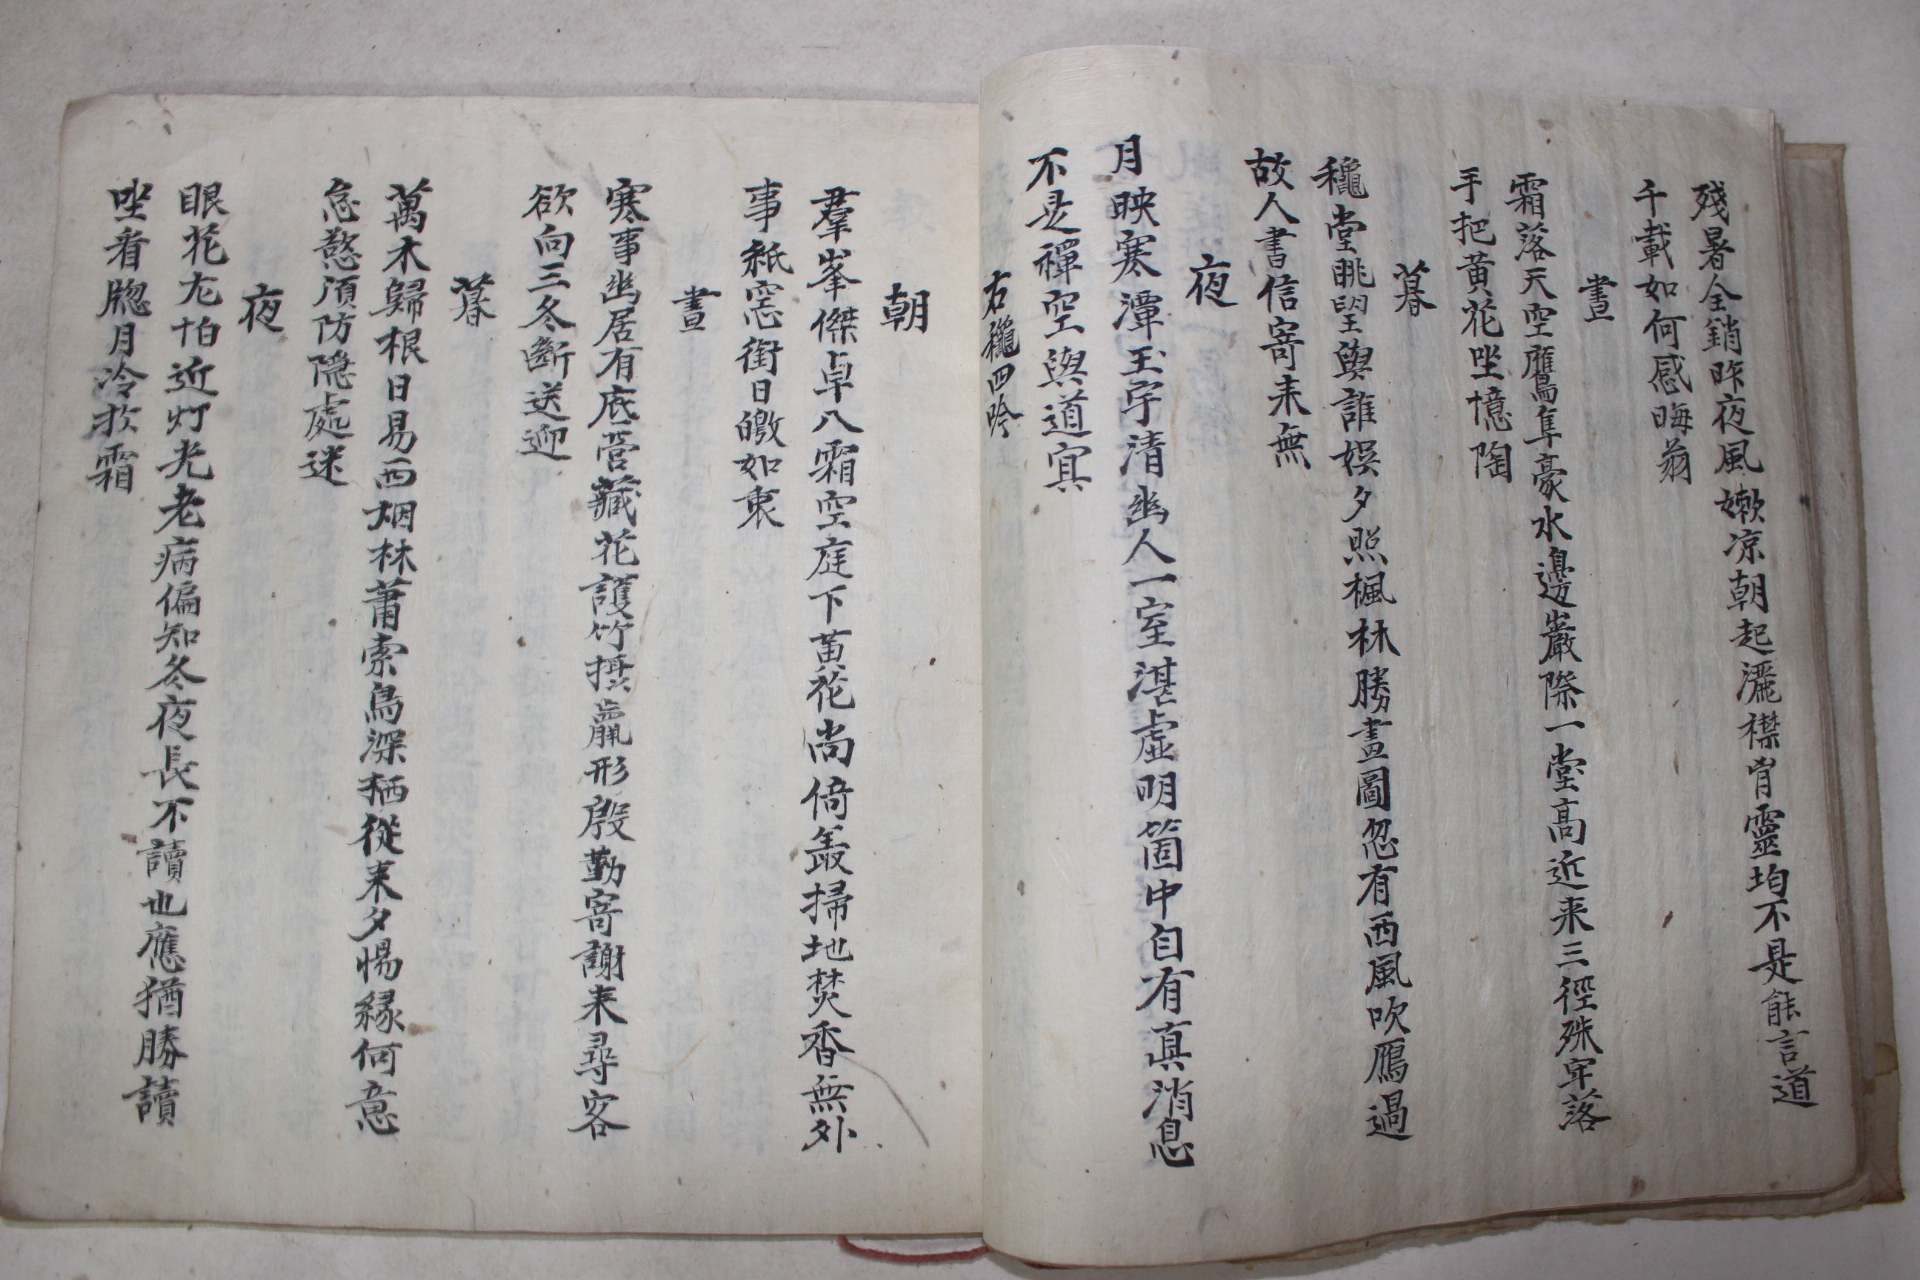 殘暑全銷昨夜風嫩凉朝起灑襟胷靈均不是能言道
千載如何感晦翁
晝
霜落天空鷹隼豪水邊巖際一堂高近來三徑殊牢落
手把黃花坐憶陶
暮
龝堂眺望與誰娛夕照楓林勝畫圖忽有西風吹鴈過
故人書信寄来無
夜
月映寒潭玉宇清幽人一室湛虛明箇中自有真消息
不是禪空與道冥
右龝四吟
朝
羣峯傑卓八霜空庭下黃花尚倚叢掃地焚香無外
事紙窓衙日皦如衷
晝
寒事幽居有底營藏花護竹攝羸形殷勤寄謝来尋客
欲向三冬斷送迎
暮
萬木歸根日易西烟林蕭索鳥深栖從来夕惕緣何意
怠慾湏防隱處迷
夜
眼花尤怕近灯光老病偏知冬夜長不讀也應猶勝讀
坐看牕月冷扵霜